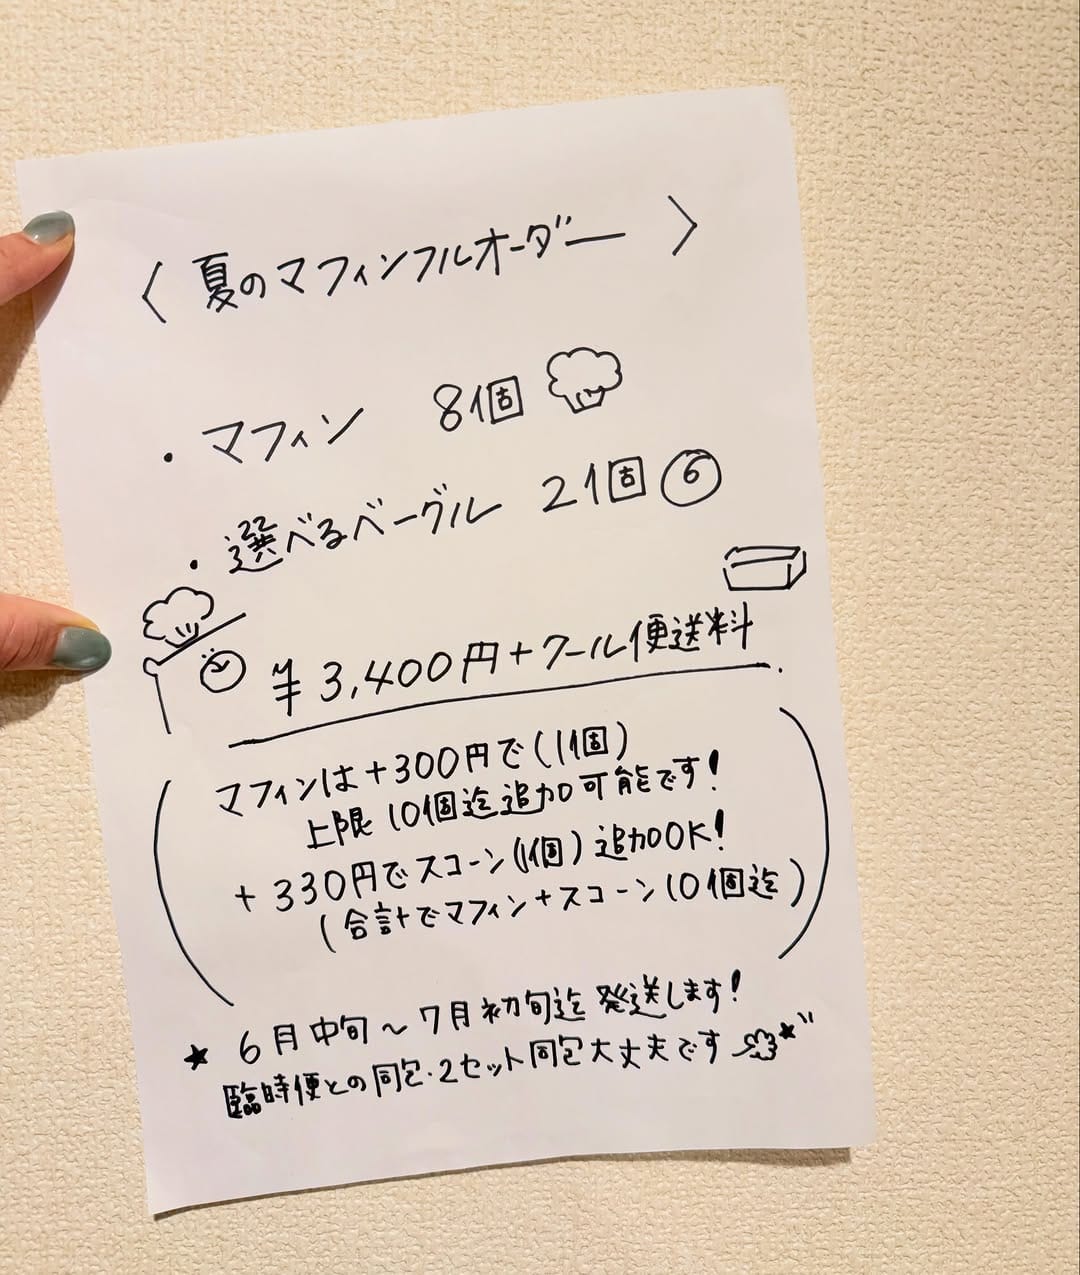 〈 夏のマフィンフルオーダー 〉
・マフィン 8個
・選べるベーグル 2個
¥3,400円+クール便送料
マフィンは+300円で(1個)
上限10個迄追加可能です!
+330円でスコーン(1個)追加OK!
(合計でマフィン+スコーン10個迄)
★ 6月中旬~7月初旬迄発送します!
臨時便との同包・2セット同包大丈夫です